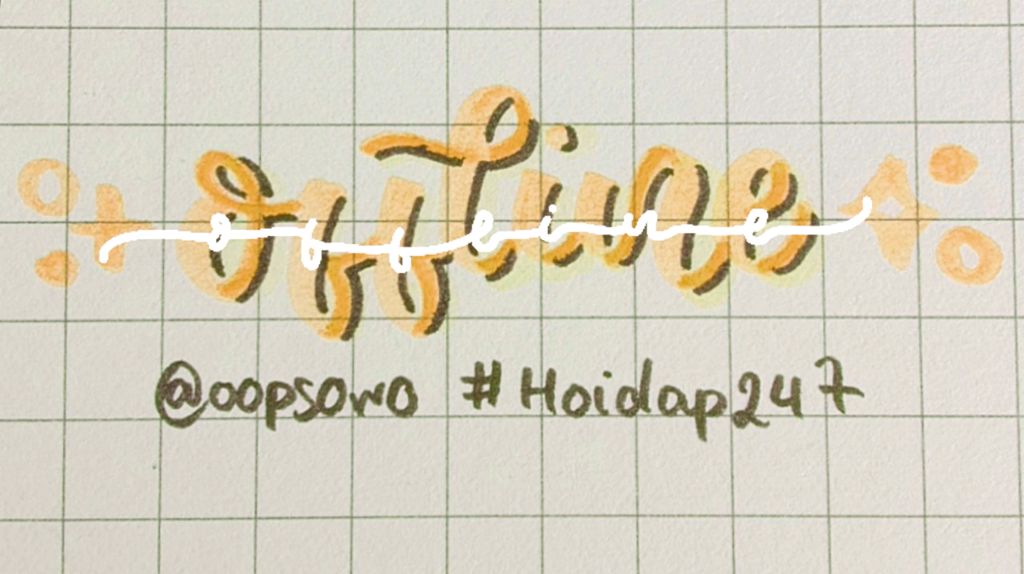 offline
offline
@oopsowo #Hoidap247